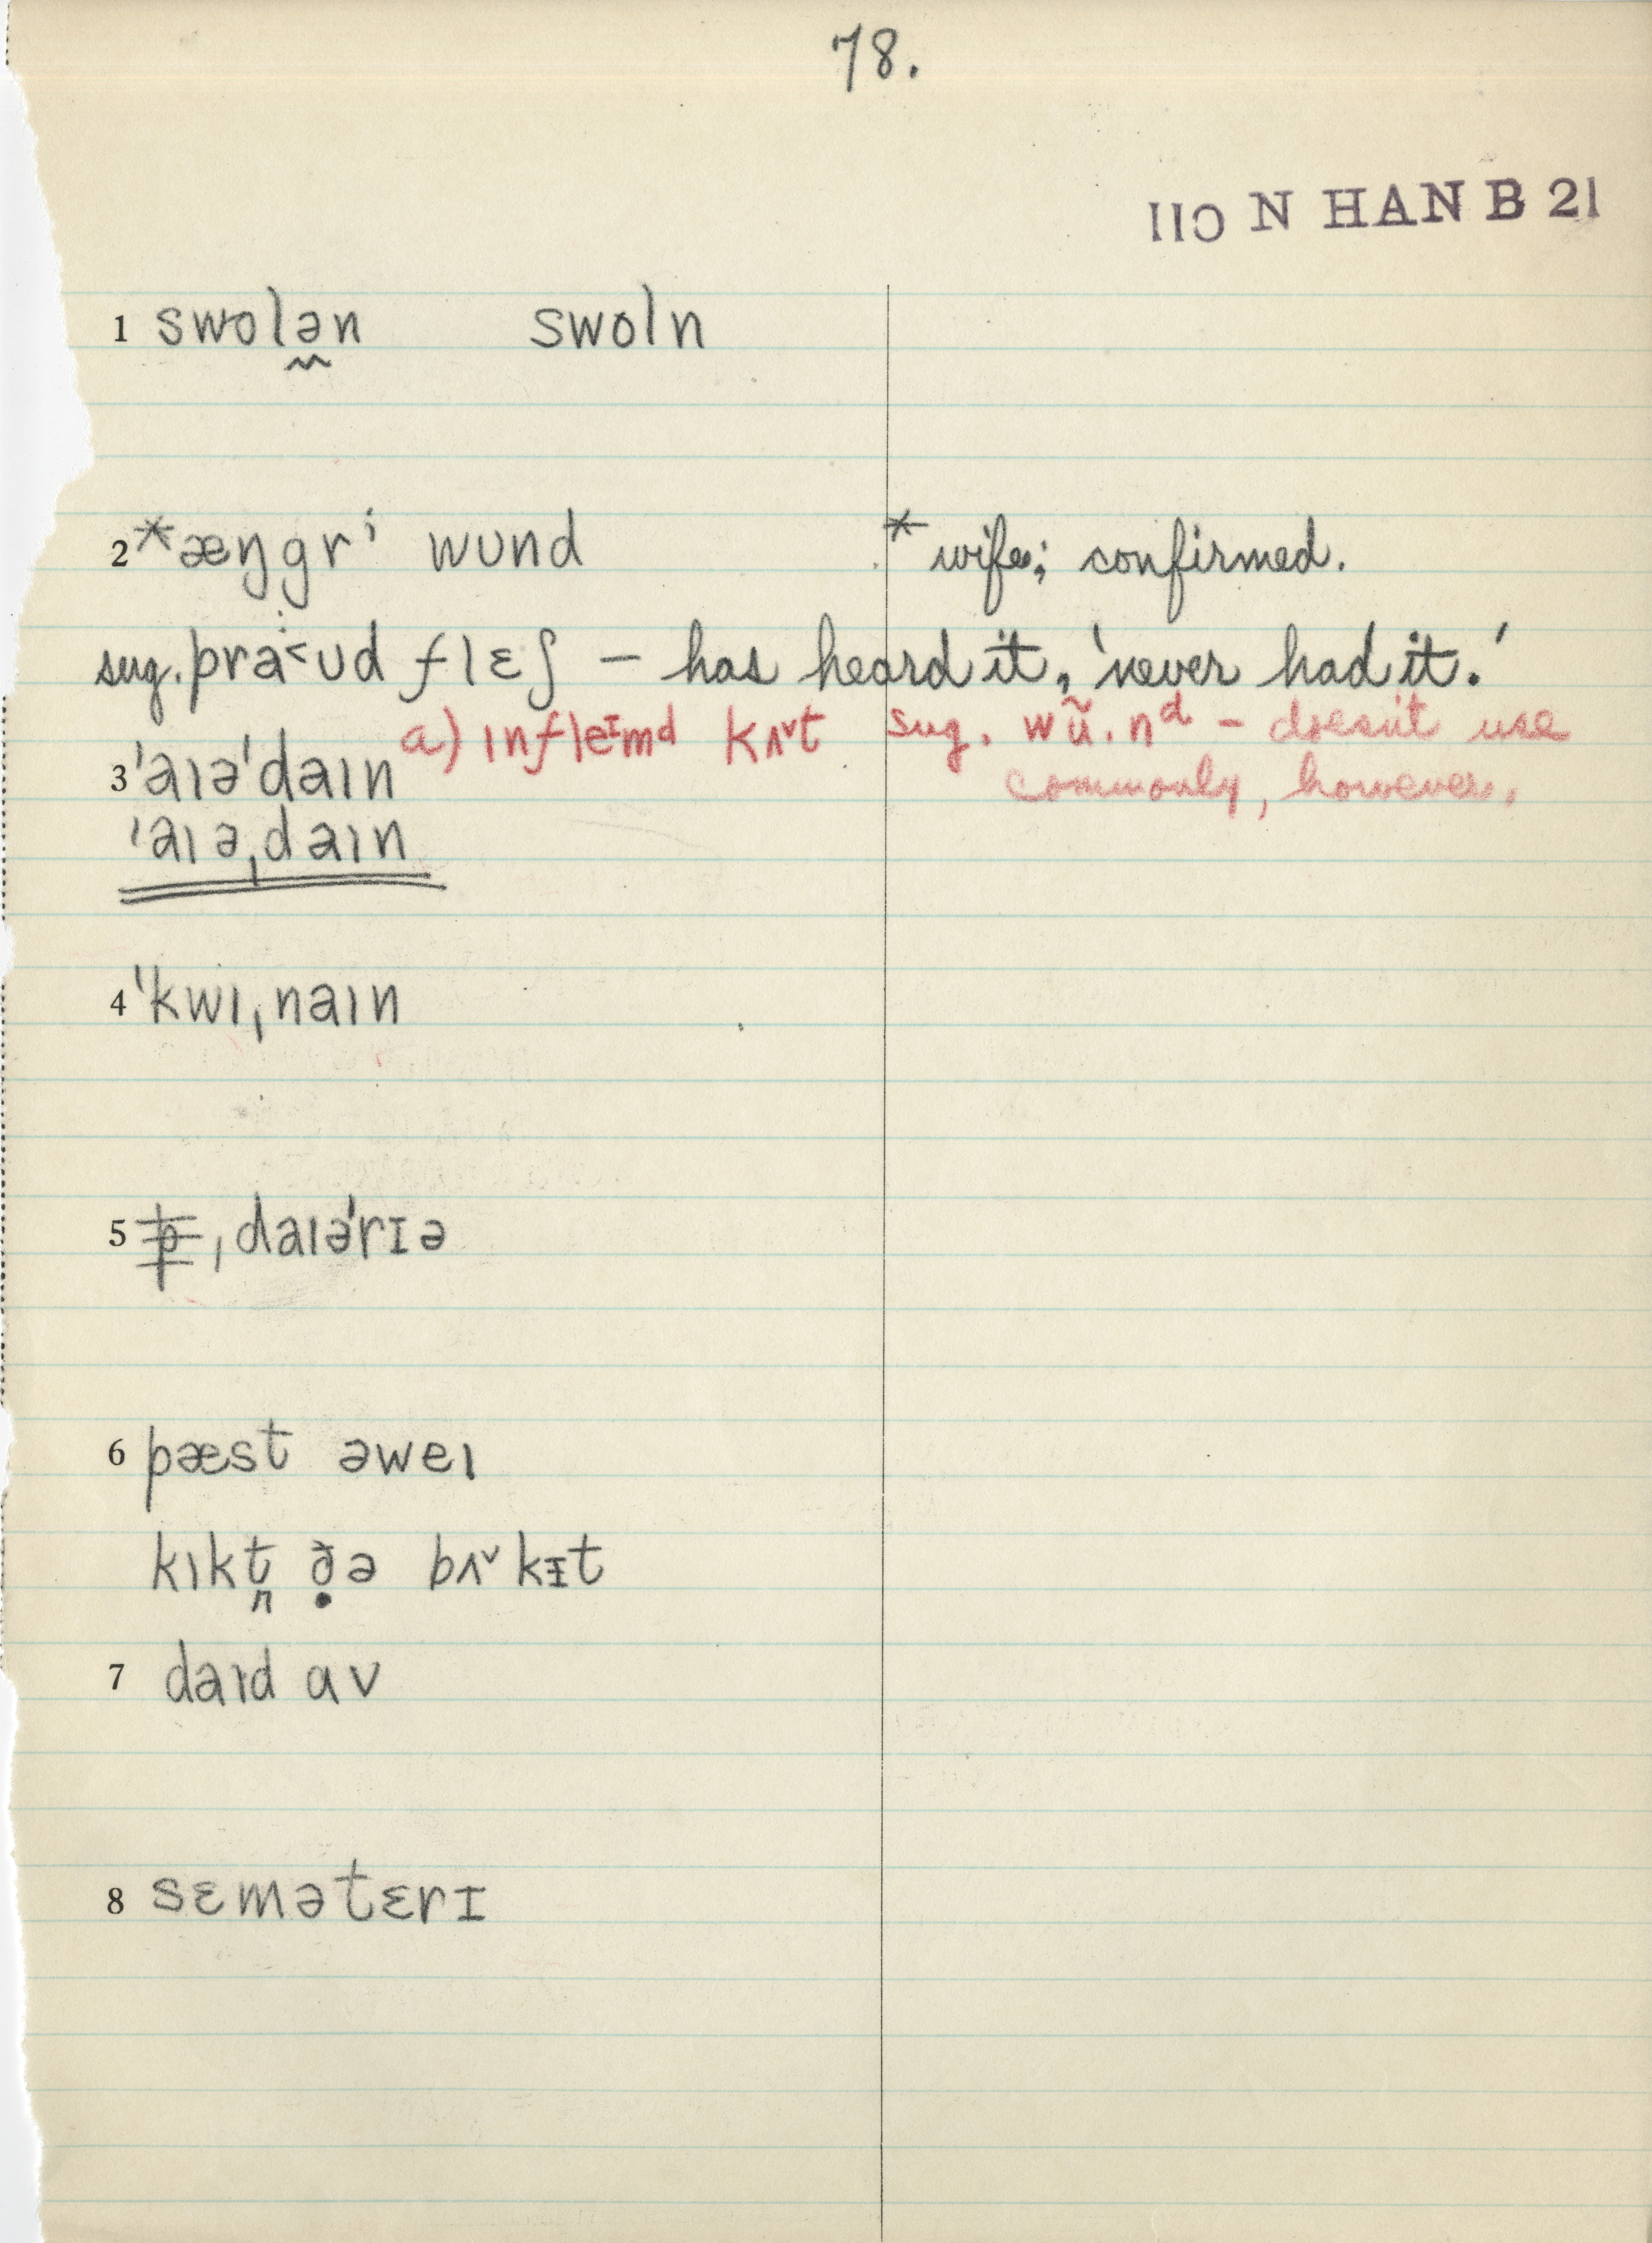 78.
110 N HAN B 21
1 swolə̯n swoln
2 *æŋgrⁱ wund * wife; confirmed.
sug. pra˂ud flɛʃ – has heard it, 'never had it.'
a) ınfleᶦmd kʌ˅t sug. wũ.nᵈ – doesn't use
3 'aıə'daın commonly, however.
'aıəˌdaın
4 'kwıˌnaın
5 ˌdaıə'rɪə
6 pæst əweı
kıkt̪ ð̣ə bʌ˅kɪt
7 daıd av
8 sɛmətɛrɪ